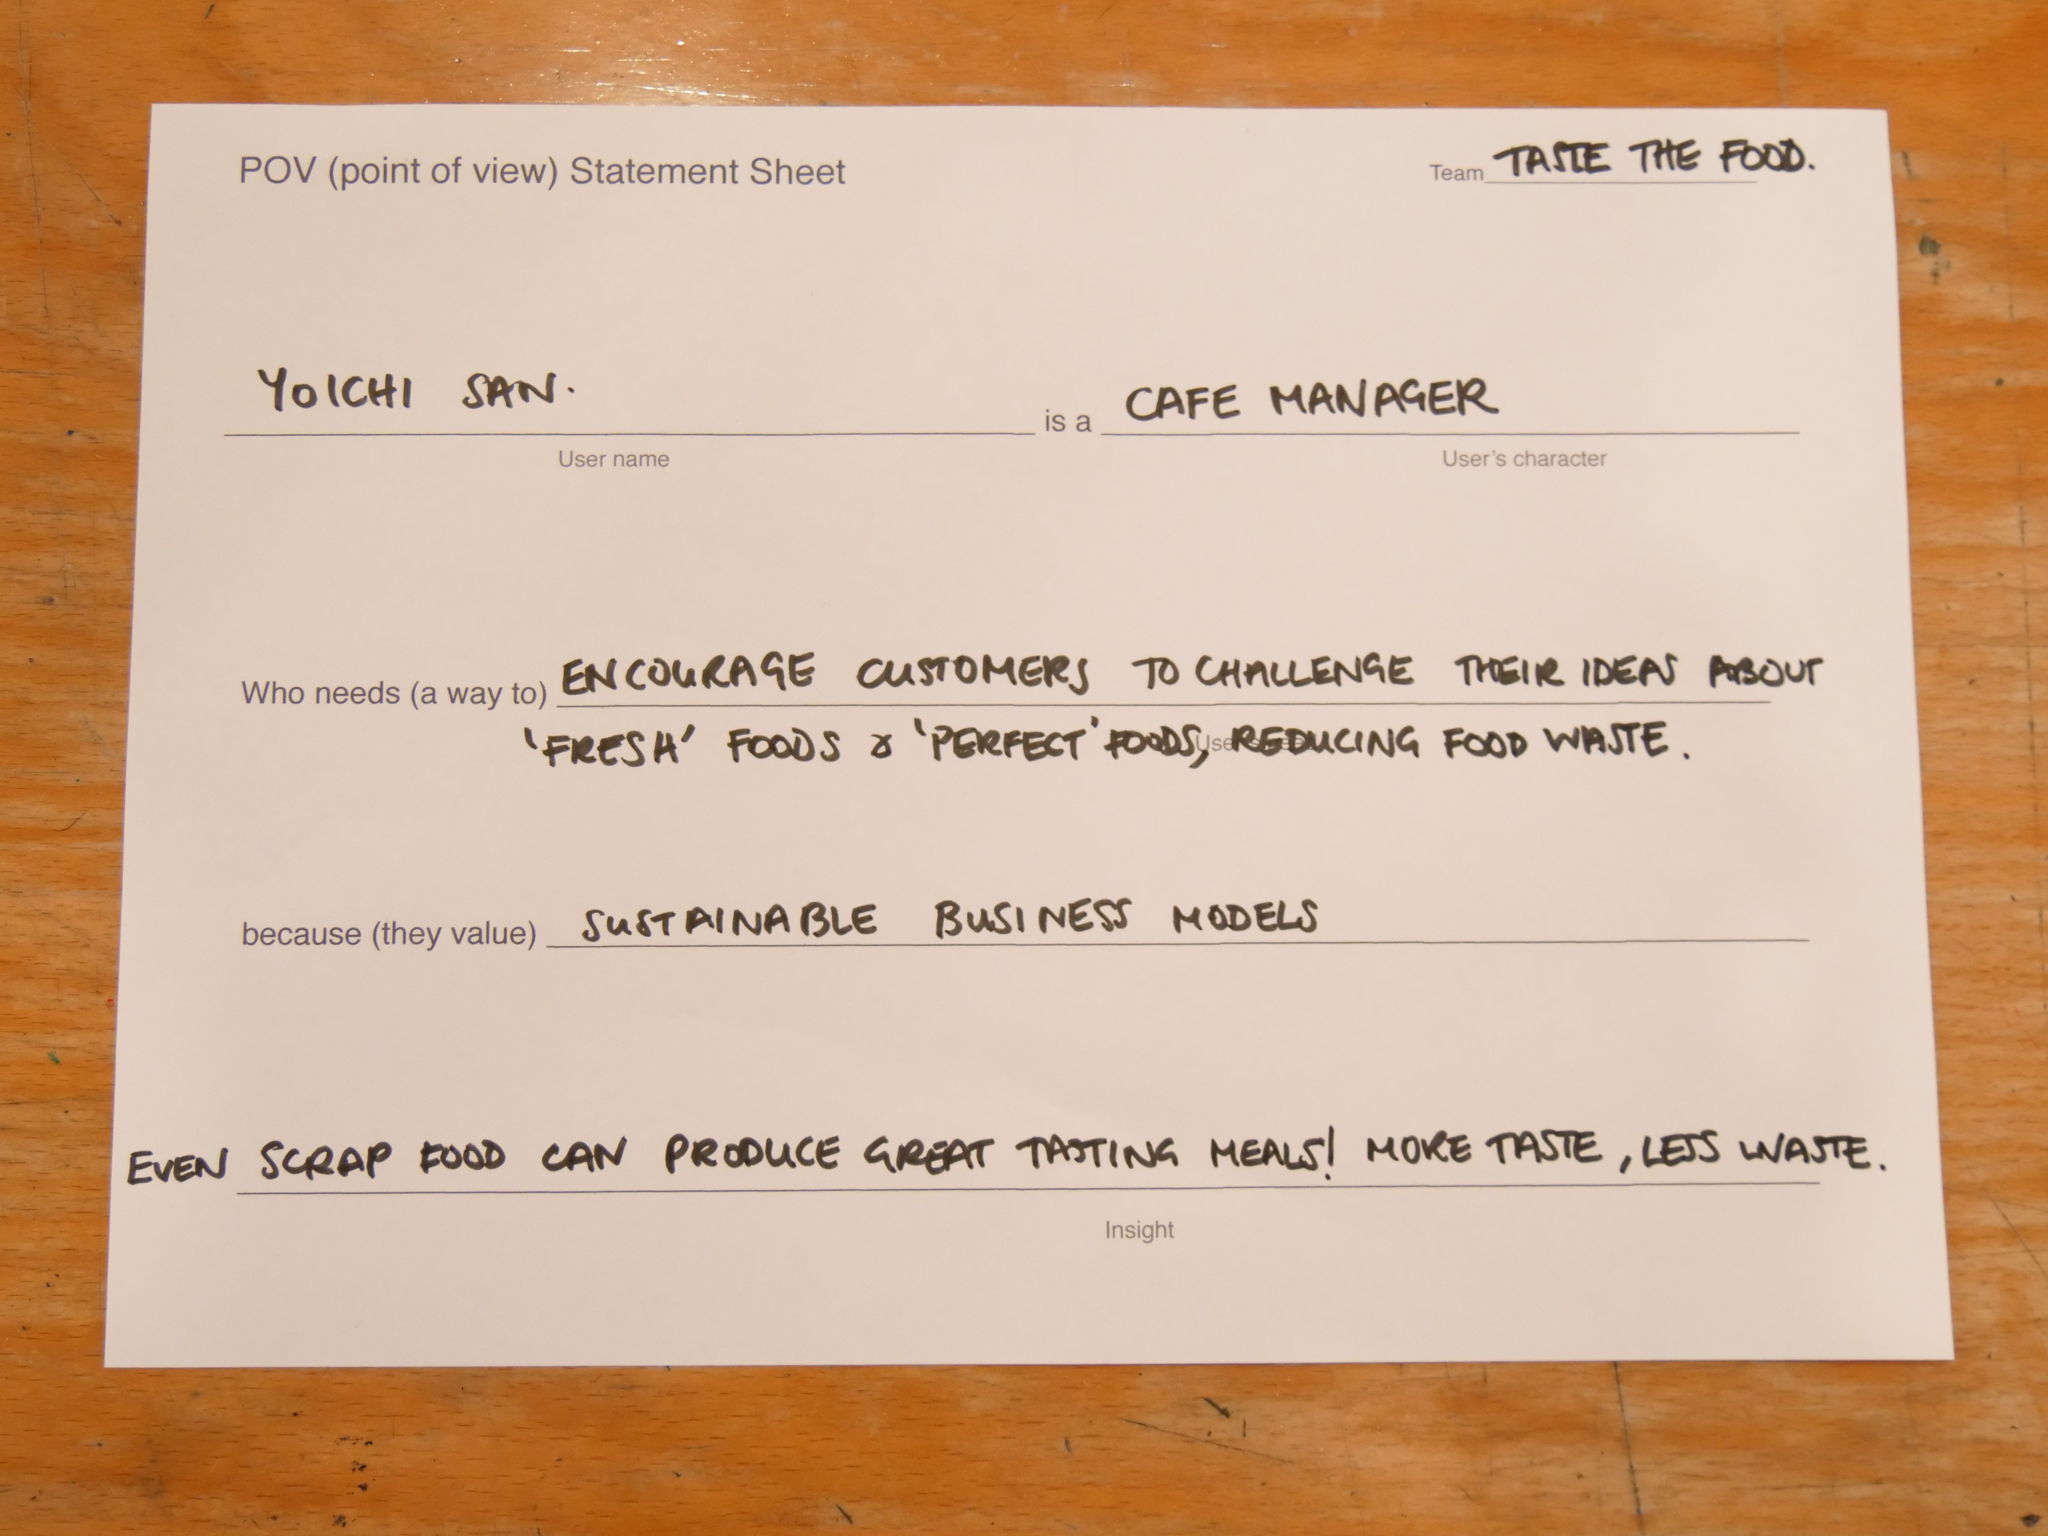 POV (point of view) Statement Sheet
Team TASTE THE FOOD.
YOICHI SAN. is a CAFE MANAGER
User name
User's character
Who needs (a way to) ENCOURAGE CUSTOMERS TO CHALLENGE THEIR IDEAS ABOUT
'FRESH' FOODS & 'PERFECT' FOODS, REDUCING FOOD WASTE.
because (they value) SUSTAINABLE BUSINESS MODELS
EVEN SCRAP FOOD CAN PRODUCE GREAT TASTING MEALS! MORE TASTE, LESS WASTE.
Insight